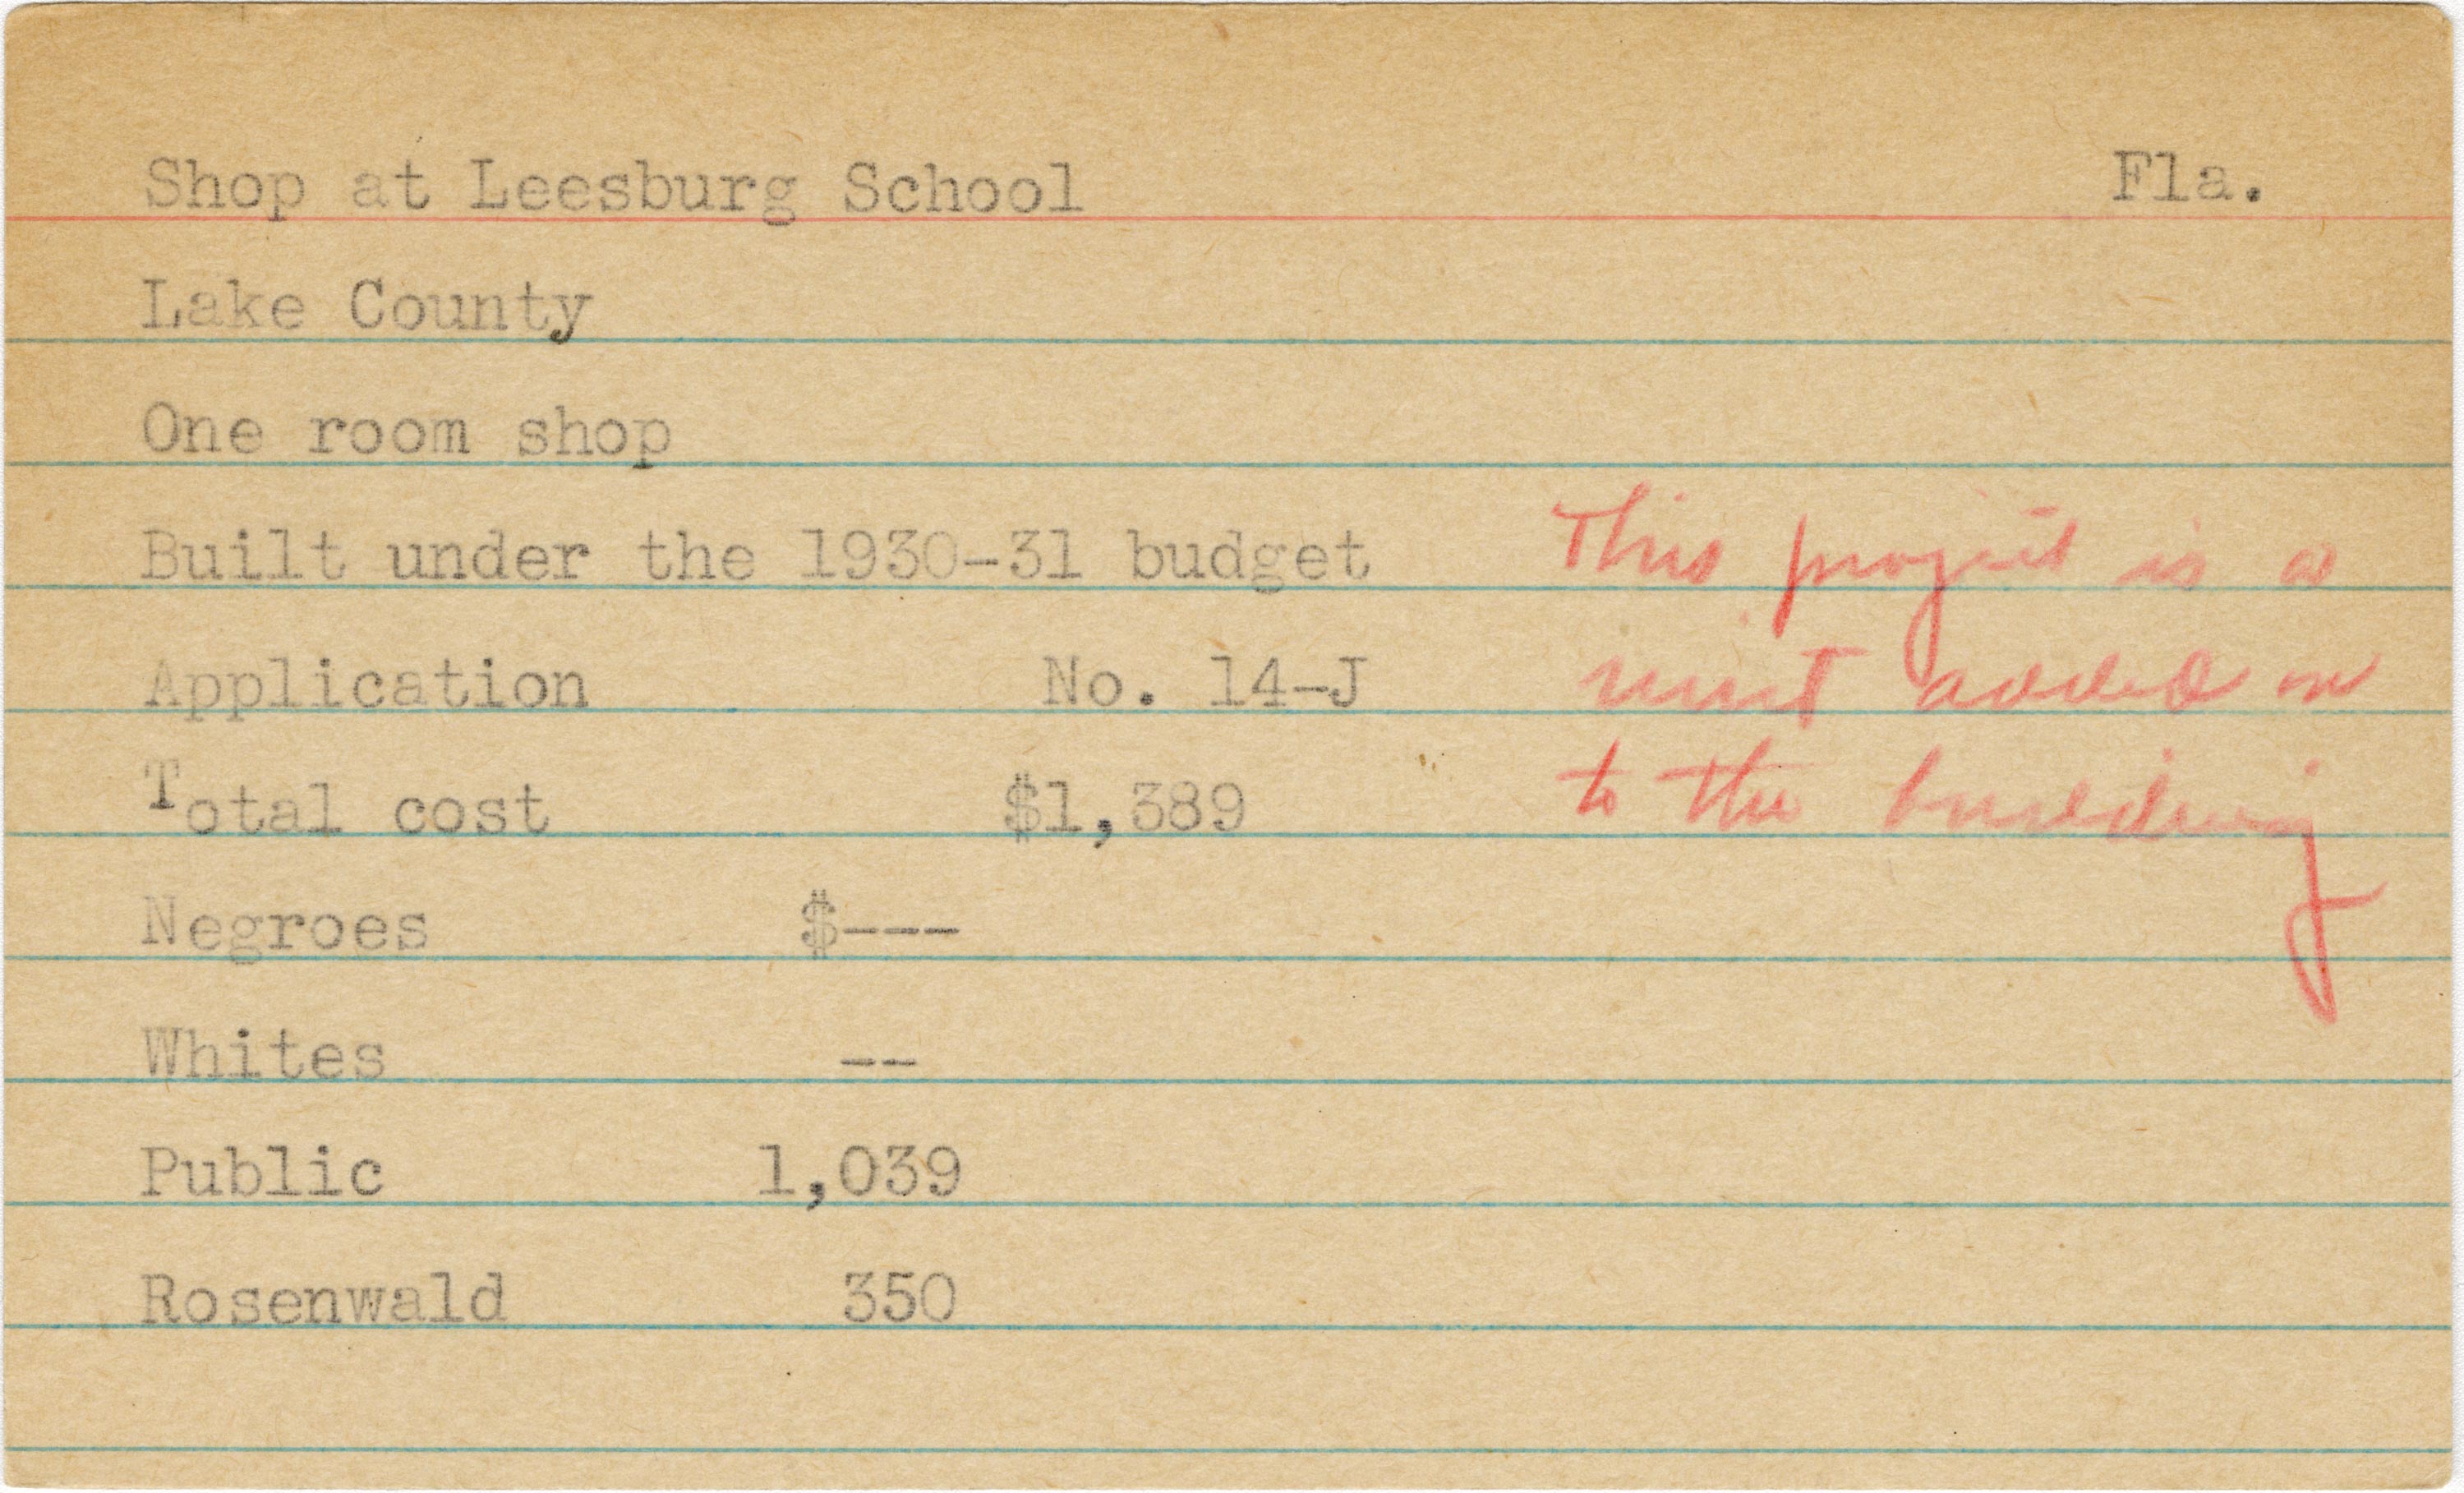 Shop at Leesburg School Fla.
Lake County
One room shop
Built under the 1930-31 budget
Application No. 14-J
Total cost $1,389
Negroes $---
Whites --
Public 1,039
Rosenwald 350
This project is a
unit added on
to the building